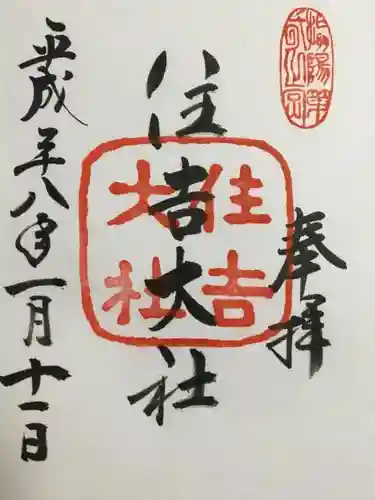 奉拝
住吉大社
平成二十八年一月十一日
住吉
大社